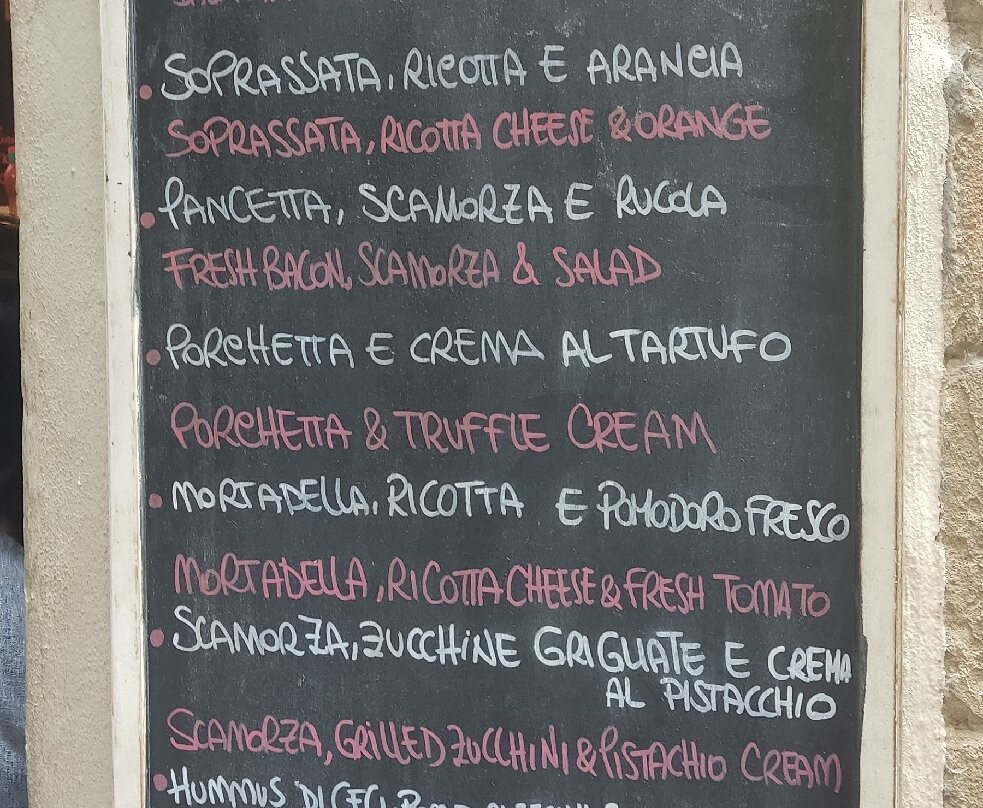 SOPRASSATA, RICOTTA E ARANCIA
SOPRASSATA, RICOTTA CHEESE & ORANGE
PANCETTA, SCAMORZA E RUCOLA
FRESH BACON, SCAMORZA & SALAD
PORCHETTA E CREMA AL TARTUFO
PORCHETTA & TRUFFLE CREAM
MORTADELLA, RICOTTA E POMODORO FRESCO
MORTADELLA, RICOTTA CHEESE & FRESH TOMATO
SCAMORZA, ZUCCHINE GRIGLIATE E CREMA
AL PISTACCHIO
SCAMORZA, GRILLED ZUCCHINI & PISTACHIO CREAM
HUMMUS DI CECI,